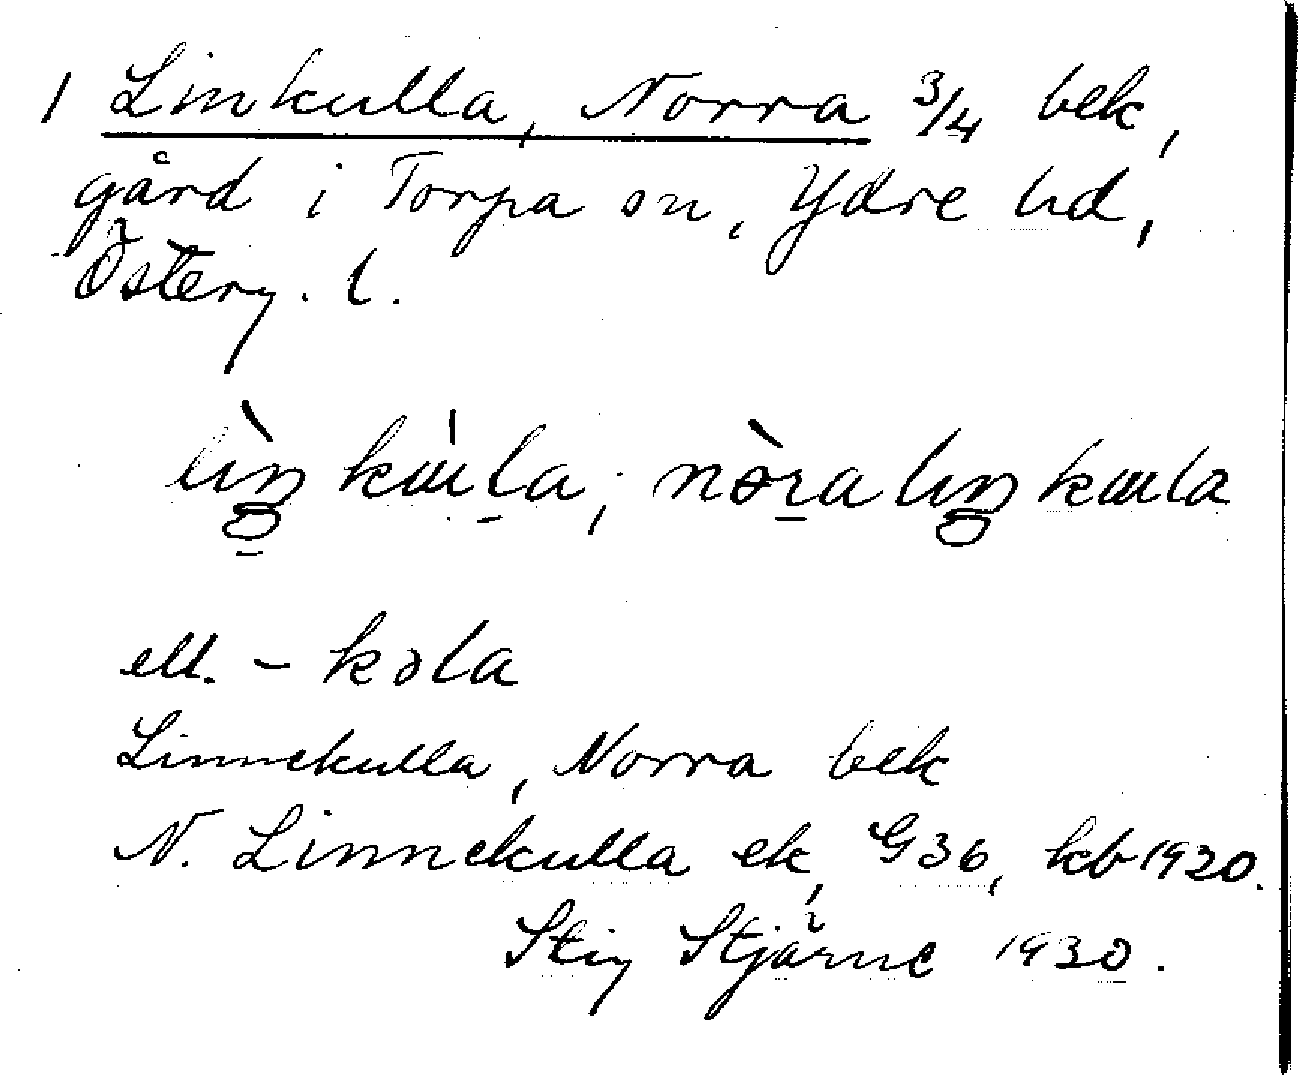 1 Linkulla, Norra 3/4 bek,
gård i Torpa sn, Ydre hd,
Österg. l.
lìŋkɯ̀la, nòralıŋkɯla
ell. - kola
Linnekulla, Norra bek
N. Linnekulla ek, G36, kb 1920.
Stig Stjärne 1930.